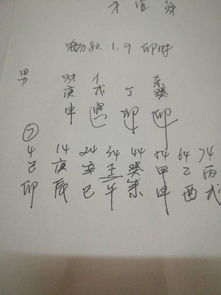 80.1.9 卯时
男 财 庚申 戊寅 丁卯 杀 癸卯
⑦
4 14 24 34 44 54 64 74
己 庚 辛 壬 癸 甲 乙 丙
卯 辰 巳 午 未 申 酉 戌